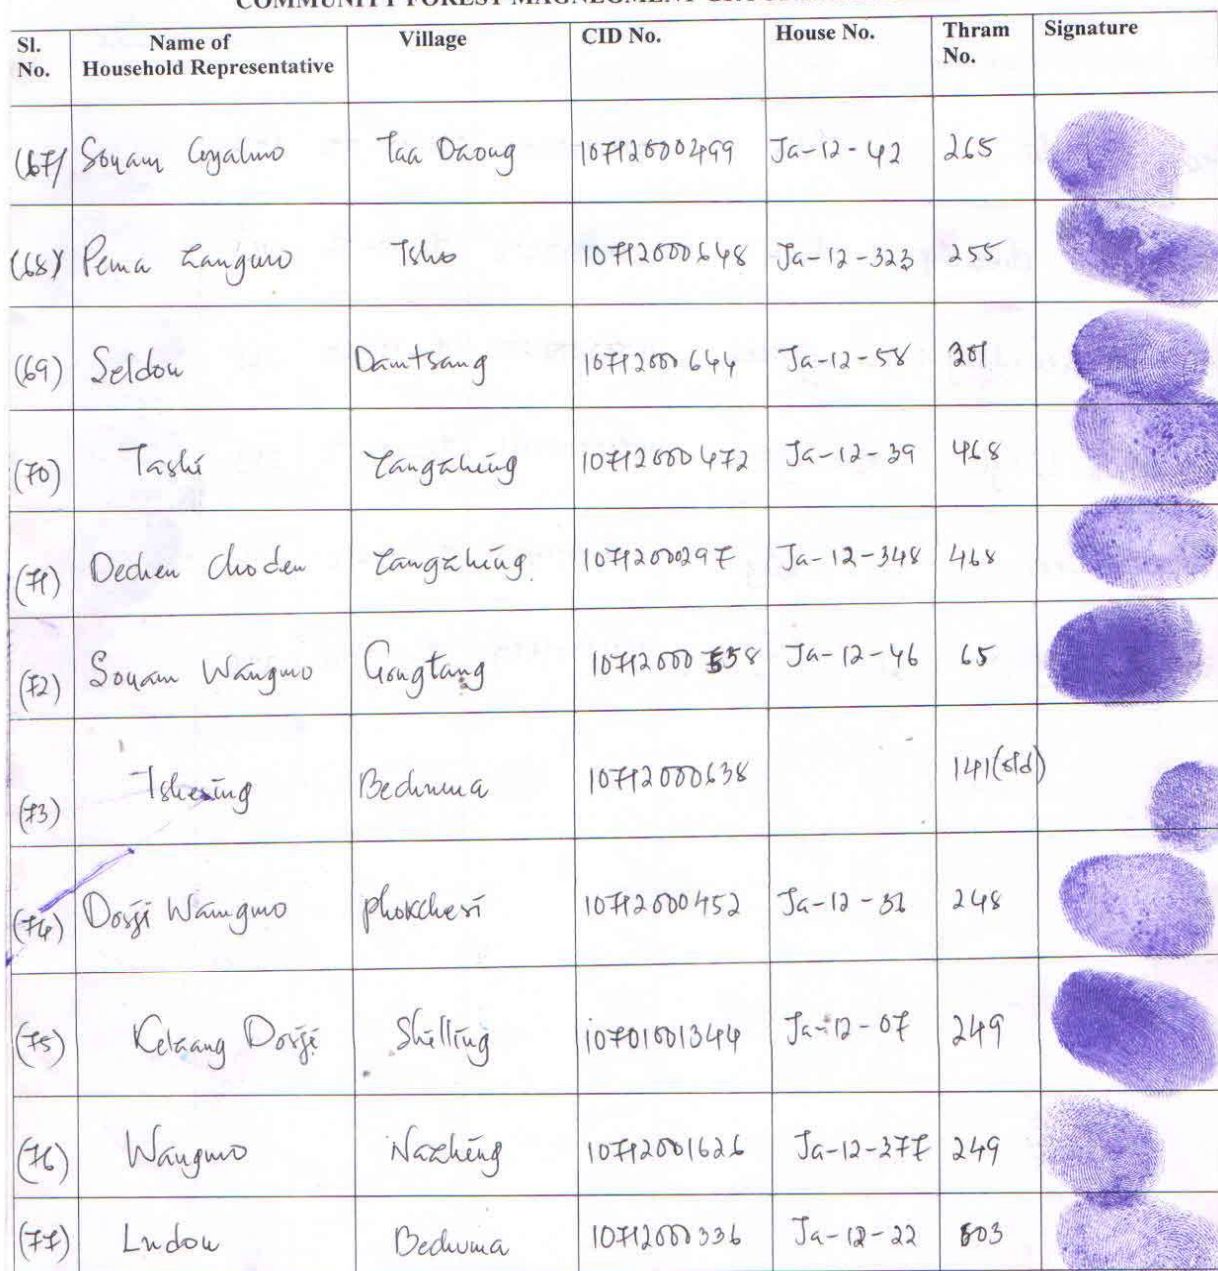 Sl. No. Name of Household Representative Village CID No. House No. Thram No. Signature
(67) Sonam Gyalmo Taa Dzong 10712000499 Ja-12-42 265
(68) Pema Zangmo Tsho 10712000648 Ja-12-323 255
(69) Seldon Damtsang 10712000644 Ja-12-58 201
(70) Tashi Zangzhing 10712000472 Ja-12-39 468
(71) Dechen Choden Zangzhing. 10712000297 Ja-12-348 468
(72) Sonam Wangmo Gongtang 10712000558 Ja-12-46 65
(73) Tshering Bechuma 10712000638 141(old)
(74) Dorji Wangmo phokcheri 10712000452 Ja-12-36 248
(75) Kelzang Dorji Shelling 10701001344 Ja-12-07 249
(76) Wangmo Nazhing 10712001626 Ja-12-377 249
(77) Lndon Bechuma 10712000336 Ja-12-22 503